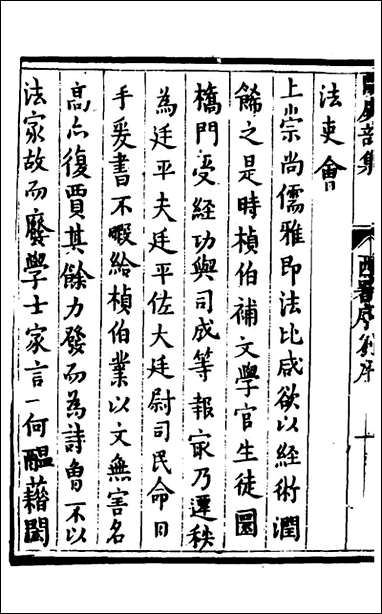 法吏會
上崇尚儒雅即法比咸欲以經術潤
餙之是時楨伯補文學官生徒圜
橋門受經功與司成等報最乃遷秩
為廷平夫廷平佐大廷尉司民命日
手爰書不暇給楨伯業以文無害名
髙尒復賈其餘力發而為詩曾不以
法家故而廢學士家言一何醖藉閎